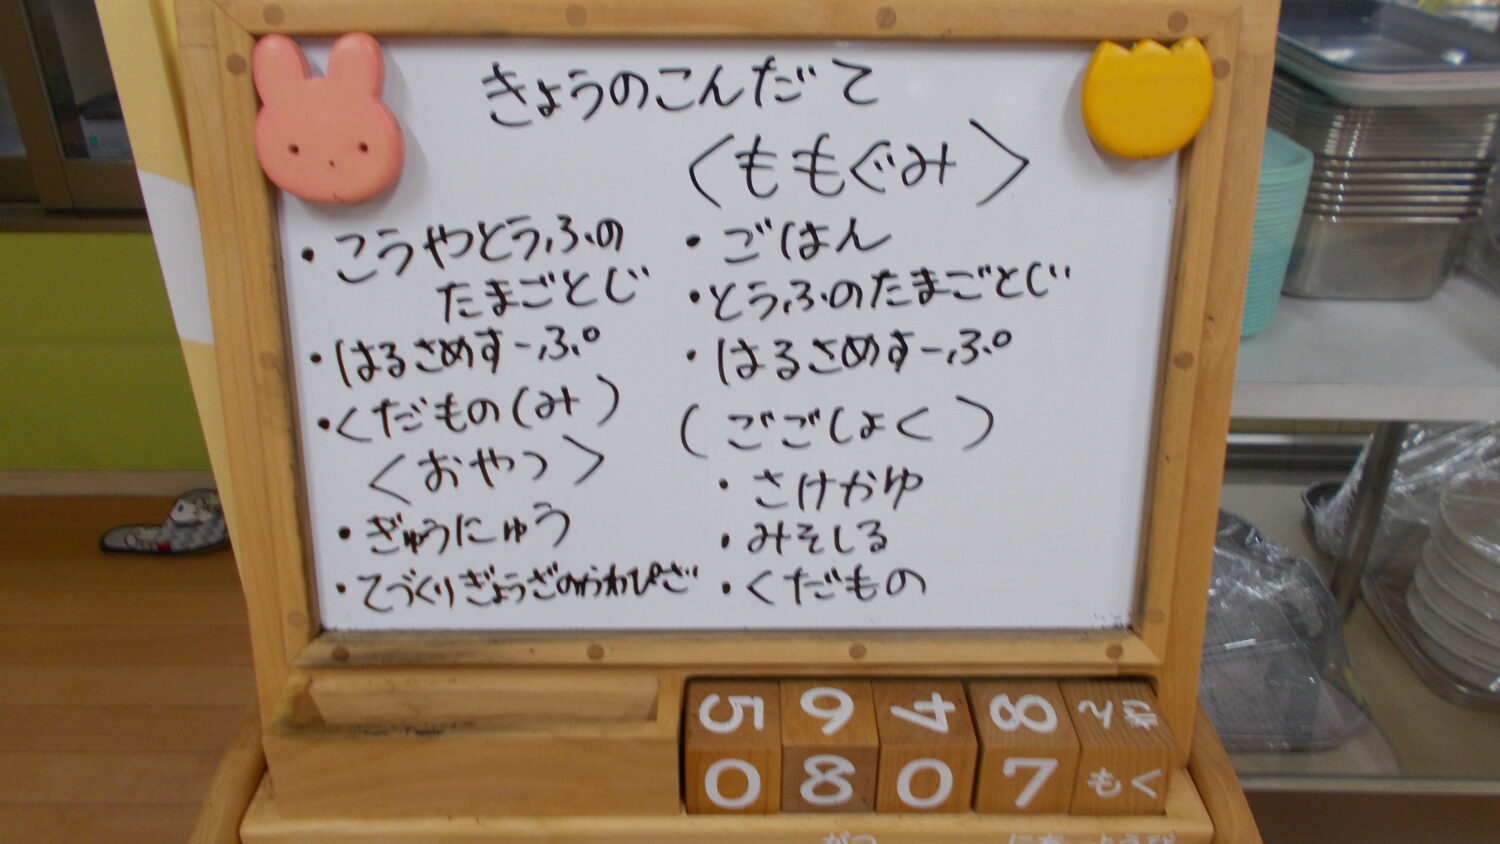 きょうのこんだて
・こうやとうふの
たまごとじ
・はるさめすーぷ
・くだもの(みかん)
<おやつ>
・ぎゅうにゅう
・てづくりぎょうざのかわぴざ
<ももぐみ>
・ごはん
・とうふのたまごとじ
・はるさめすーぷ
(ごごしょく)
・さけかゆ
・みそしる
・くだもの
5 6 4 8
0 8 0 7 もく
がつ